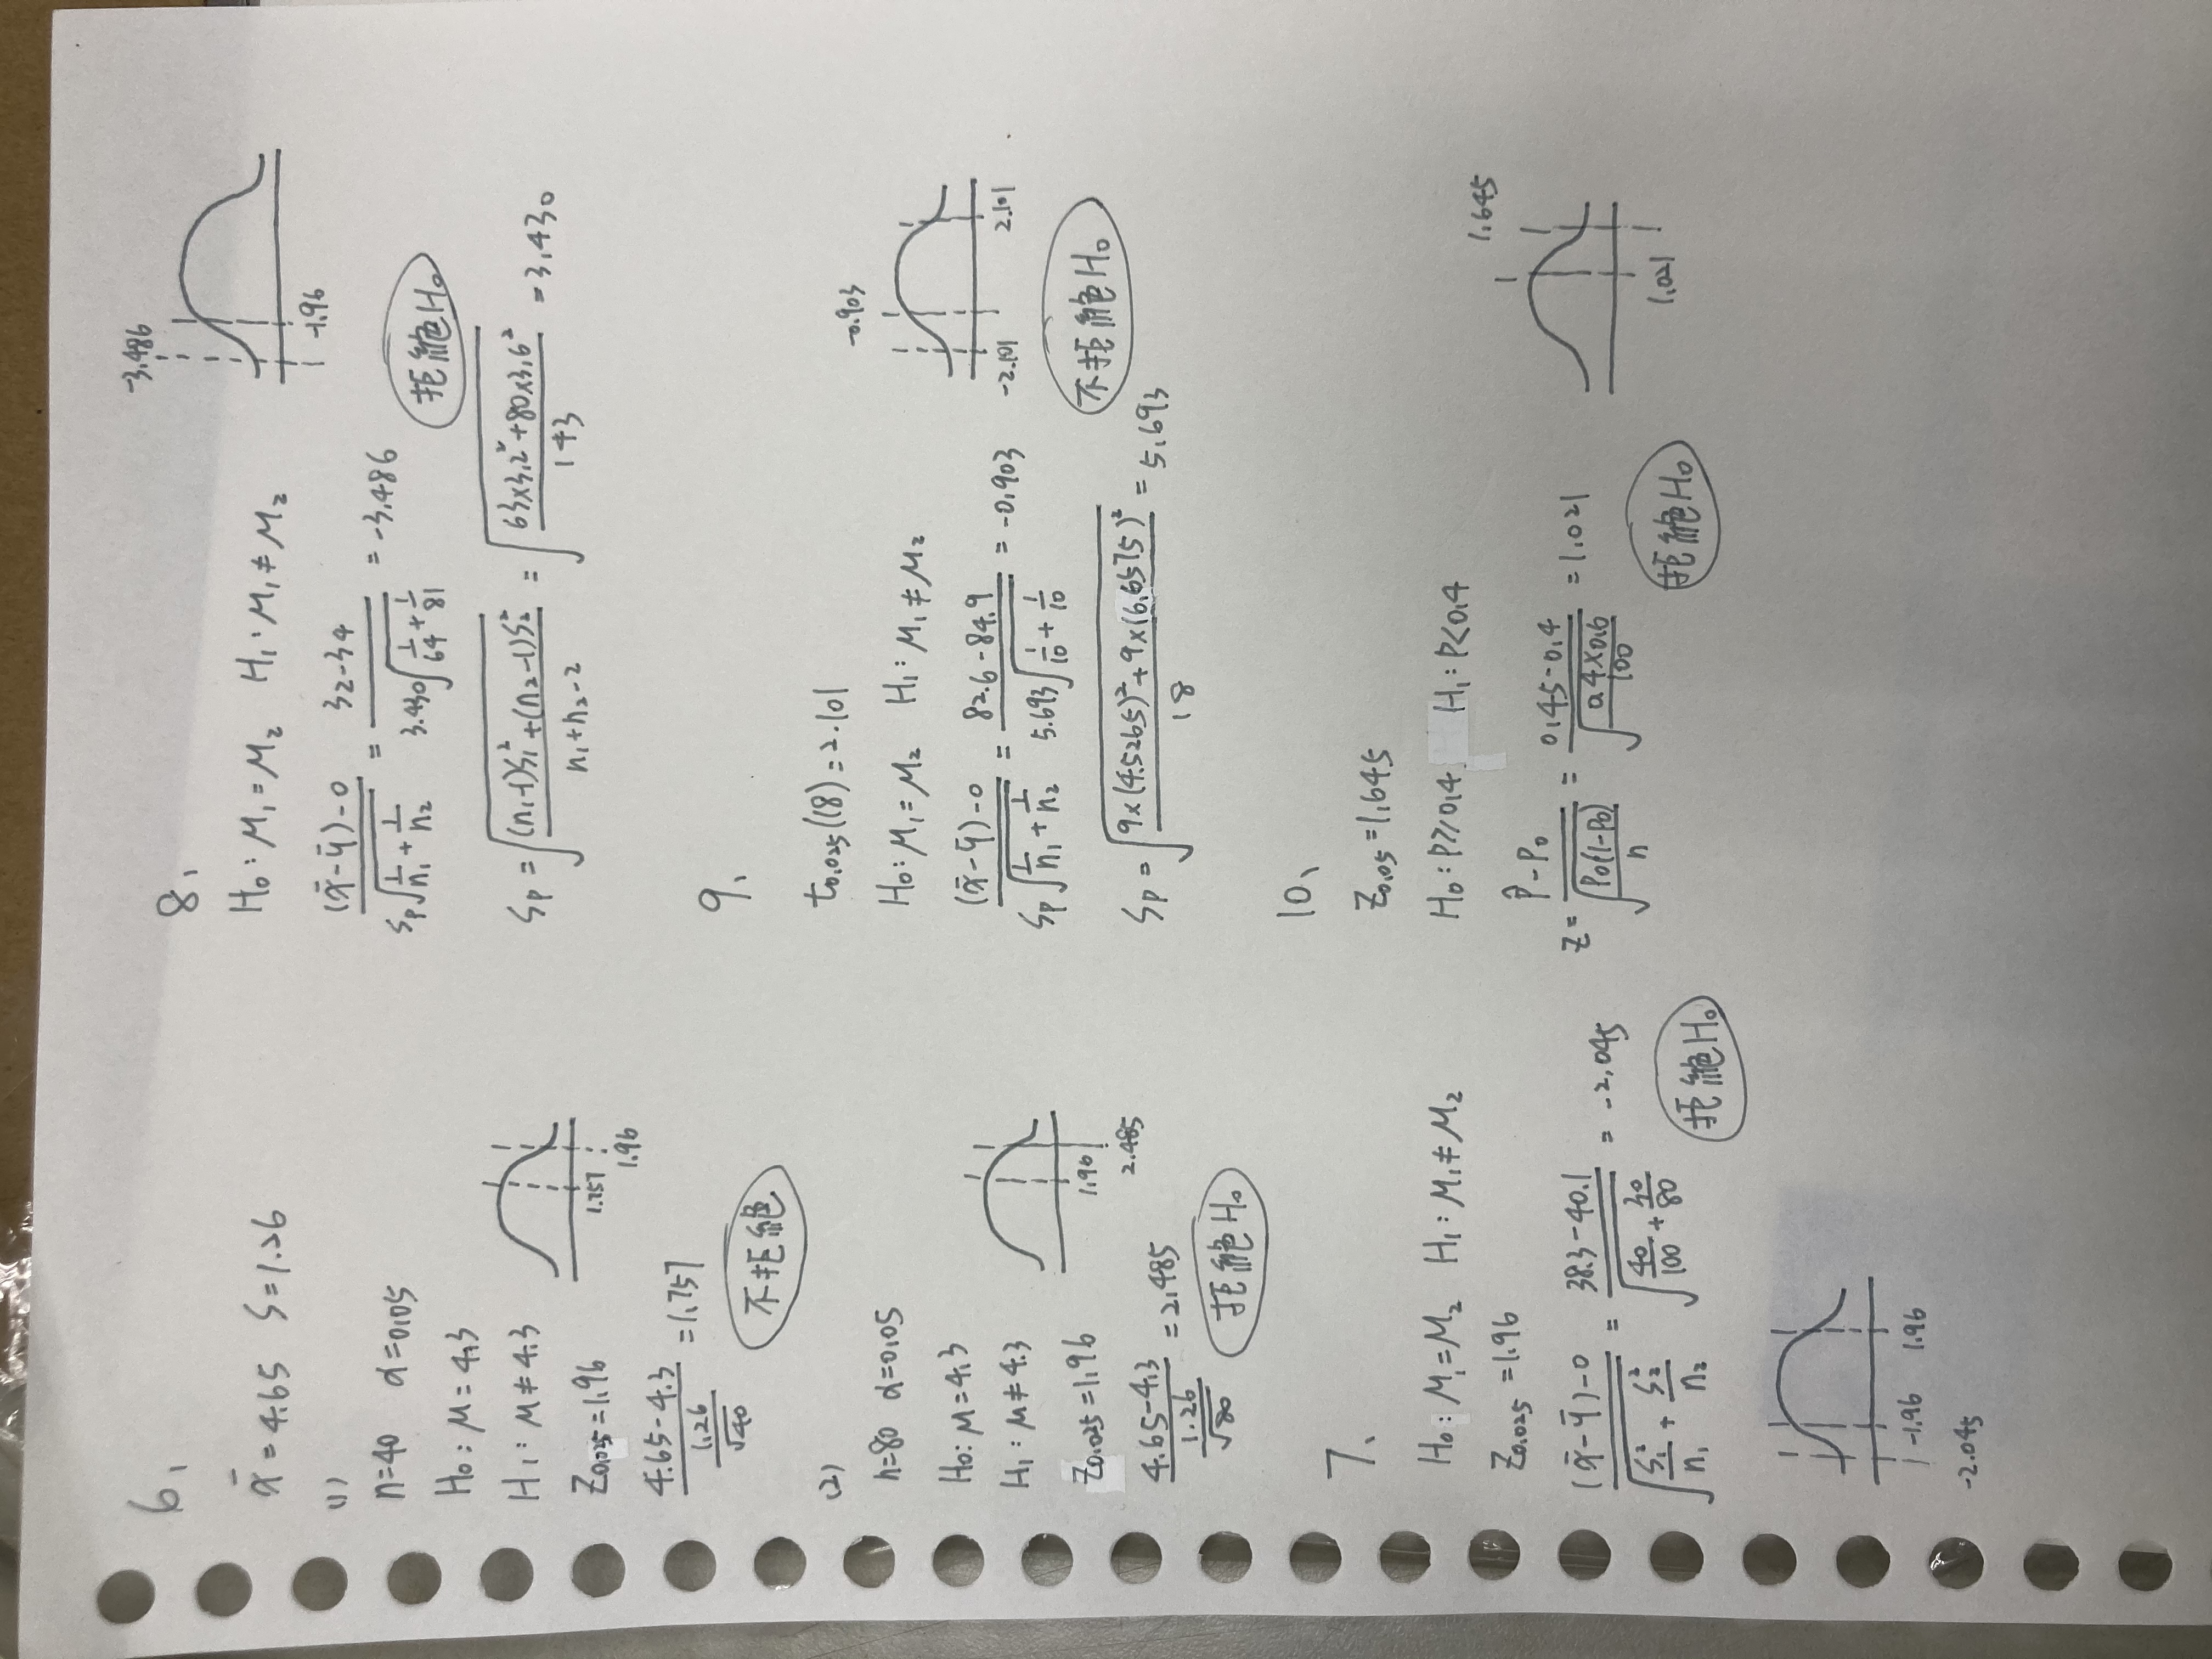 6、
x̄ = 4.65 S = 1.26
(1)
n=40 α=0.05
H₀: μ = 4.3
H₁: μ ≠ 4.3
Z₀.₀₂₅ = 1.96
(4.65-4.3)/(1.26/√40) = 1.757
1.757
1.96
不拒絕
(2)
n=80 α=0.05
H₀: μ = 4.3
H₁: μ ≠ 4.3
Z₀.₀₂₅ = 1.96
(4.65-4.3)/(1.26/√80) = 2.485
1.96
2.485
拒絕H₀
7、
H₀: μ₁ = μ₂ H₁: μ₁ ≠ μ₂
Z₀.₀₂₅ = 1.96
((x̄-ȳ)-0)/√(S₁²/n₁ + S₂²/n₂) = (38.3-40.1)/√(40/100 + 30/80) = -2.045
拒絕H₀
-1.96 1.96
-2.045
8、
H₀: μ₁ = μ₂ H₁: μ₁ ≠ μ₂
((x̄-ȳ)-0)/(Sp√(1/n₁ + 1/n₂)) = (32-34)/(3.430√(1/64 + 1/81)) = -3.486
-3.486
-1.96
拒絕H₀
Sp = √(((n₁-1)S₁²+(n₂-1)S₂²)/(n₁+n₂-2)) = √((63×3.2²+80×3.6²)/143) = 3.430
9、
t₀.₀₂₅(18) = 2.101
H₀: μ₁ = μ₂ H₁: μ₁ ≠ μ₂
((x̄-ȳ)-0)/(Sp√(1/n₁ + 1/n₂)) = (82.6-84.9)/(5.693√(1/10 + 1/10)) = -0.903
-0.903
-2.101 2.101
不拒絕H₀
Sp = √((9×(4.5265)²+9×(6.6575)²)/18) = 5.693
10、
Z₀.₀₅ = 1.645
H₀: P≥0.4 H₁: P<0.4
Z = (p̂-P₀)/√(P₀(1-P₀)/n) = (0.45-0.4)/√(0.4×0.6/100) = 1.021
1.645
1.021
拒絕H₀